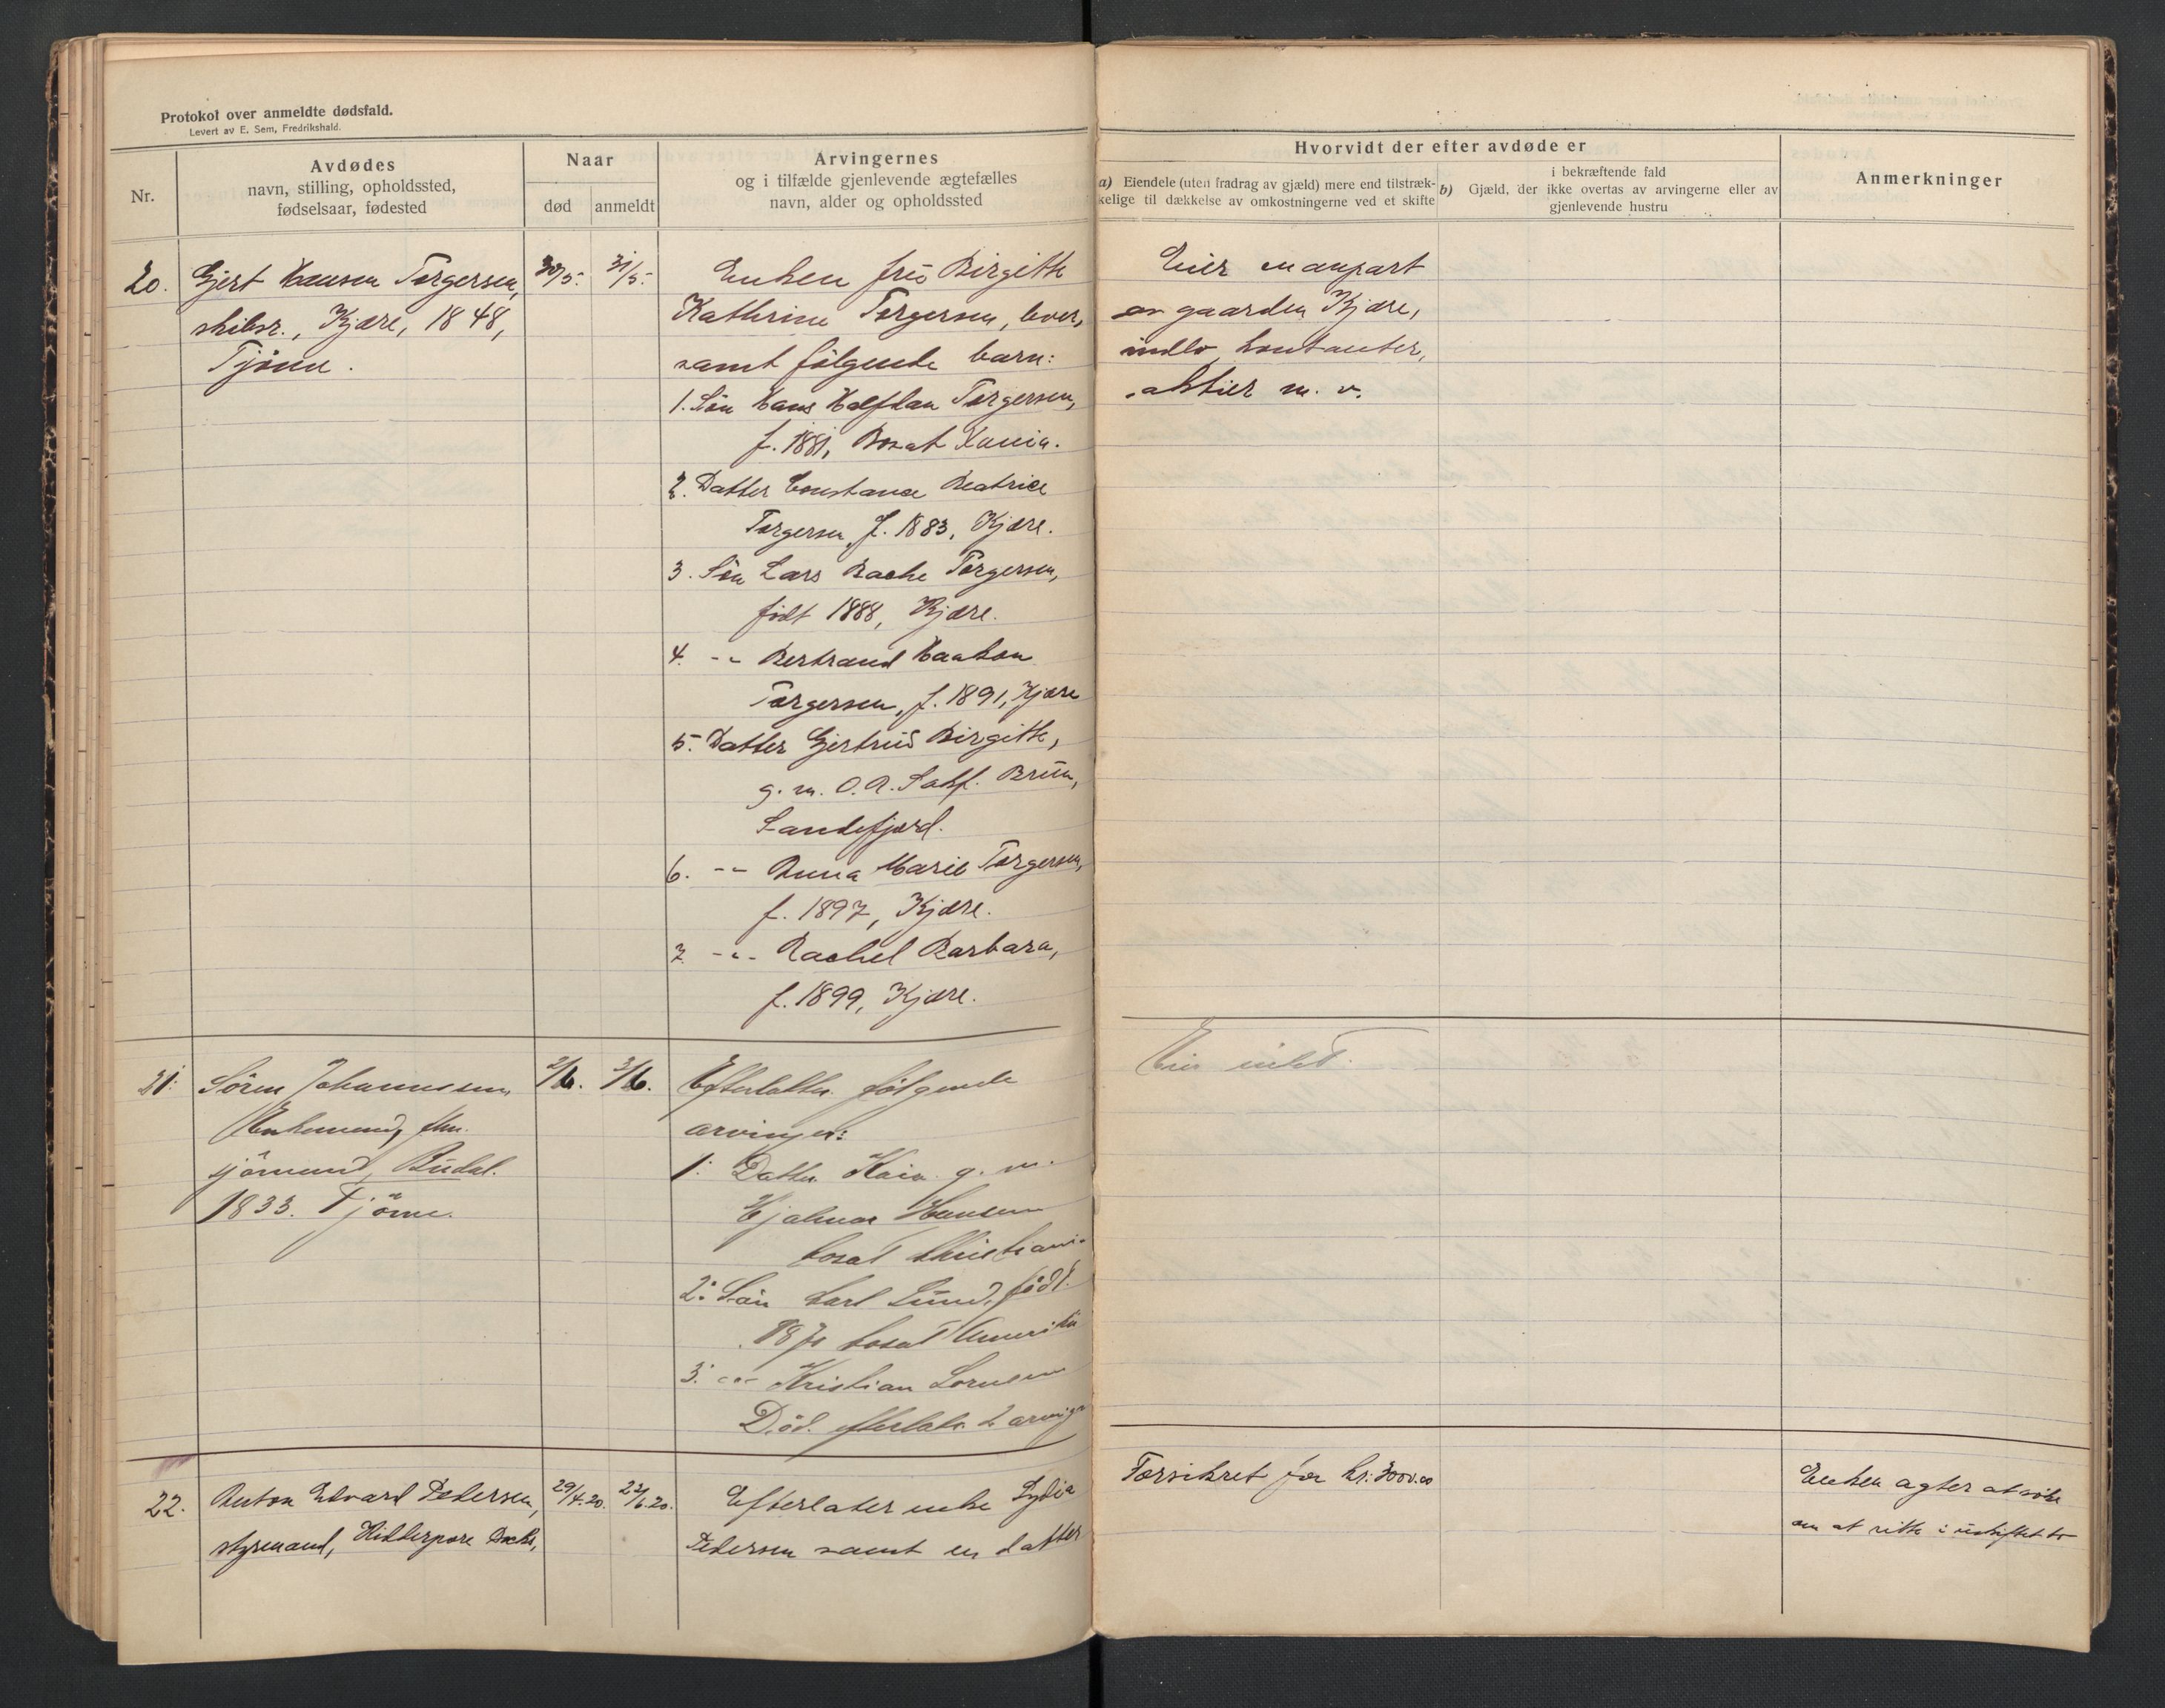 Protokol over anmeldte dødsfald.
Levert av E. Sem, Fredrikshald.
Nr.
Avdødes
navn, stilling, opholdssted,
fødselsaar, fødested
Naar
død
anmeldt
Arvingernes
og i tilfælde gjenlevende ægtefælles
navn, alder og opholdssted
20.
Gjert Hansen Torgersen,
skibsr., Kjære, 1848,
Tjöme.
30/5.
31/5.
Enken frü Birgitte
Kathrine Torgersen, lever,
samt følgende barn:
1. Sön Hans Halfdan Torgersen,
f. 1881, Bosat Kania.
2. Datter Constance Beatrice
Torgersen, f. 1883, Kjære.
3. Sön Lars Bache Torgersen,
födt 1888, Kjære.
4. -"- Bertrand Haakon
Torgersen, f. 1891, Kjære
5. Datter Gjertrüd Birgitte,
g. m. O. A. Brün,
Sandefjord.
6. -"- Anna Marie Torgersen,
f. 1897, Kjære.
7. -"- Rachel Barbara,
f. 1899, Kjære.
21.
Sören Johannessen
Enkemand, fhv.
sjömand, Büdal.
1833. Tjöme.
2/6.
3/6.
Efterlatter følgende
arvinger:
1. Datter Kaia g. m.
Hjalmar Hansen
bosat Christiania
2. Sön Carl Lünd, födt
bosat Amerika
3. -"- Kristian Sörensen
Död. efterlater 2 arvinger
22.
Anton Edvard Pedersen,
styrmand, Kidderpore Docks,
29/4.20.
22/6.20.
Efterlater enke Lydia
Pedersen samt en datter
Hvorvidt der efter avdøde er
a) Eiendele (uten fradrag av gjæld) mere end tilstræk-
kelige til dækkelse av omkostningerne ved et skifte
i bekræftende fald
b) Gjæld, der ikke overtas av arvingerne eller av
gjenlevende hustru
Anmerkninger
Eier en anpart
av gaarden Kjære,
indbo, kontanter,
aktier m. v.
Eier intet.
Forsikret for kr: 3000.00
Enken agter at söke
om at sitte i uskiftet bo